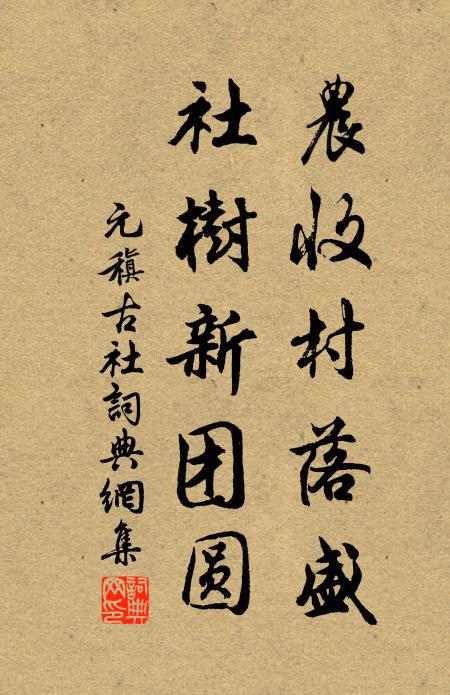 農收村落盛
社樹新团圆
元稹古社詞典網集
詞典网印